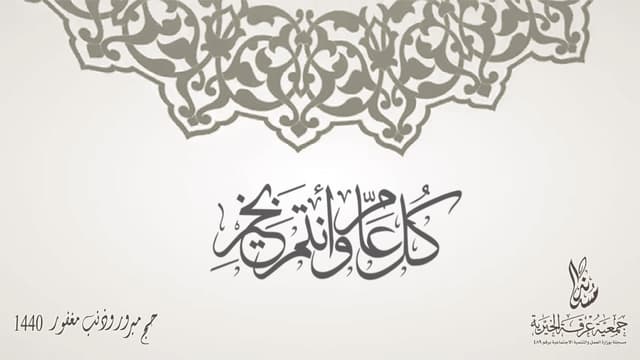 كُل عَامٍ وَأنتم بخَيرِ
حج مبرور وذنب مغفور 1440
جمعية عرقة الخيرية
مسجلة بوزارة العمل والتنمية الاجتماعية برقم ٤٨٩